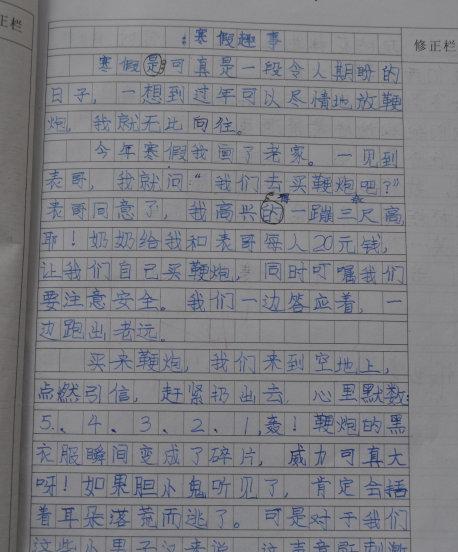 正栏
修正栏
寒假趣事
寒假是可真是一段令人期盼的
日子，一想到过年可以尽情地放鞭
炮，我就无比向往。
今年寒假我回了老家。一见到
表哥，我就问：“我们去买鞭炮吧？”
得
表哥同意了，我高兴的一蹦三尺高，
耶！奶奶给我和表哥每人20元钱，
让我们自己买鞭炮，同时叮嘱我们
要注意安全。我们一边答应着，一
边跑出老远。
买来鞭炮，我们来到空地上，
点燃引信，赶紧扔出去，心里默数：
5、4、3、2、1，轰！鞭炮的黑
衣服瞬间变成了碎片，威力可真大
呀！如果胆小鬼听见了，肯定会捂
着耳朵落荒而逃了。可是对于我们
这些小男子汉来说，这声音